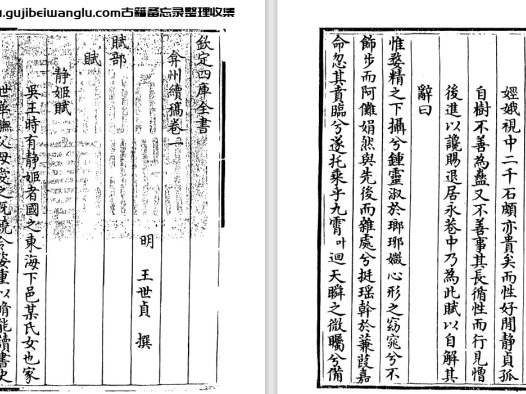 .gujibeiwanglu.com古籍备忘录整理收集
欽定四庫全書
弇州續稿卷一
明 王世貞 撰
賦部
賦
靜姬賦
吳王時有靜姬者國之東海下邑某氏女也家
世華膴父母
重以脩能讀書史
娙娥視中二千石頗亦貴矣而性好閒靜貞孤
自樹不善為蠱又不善事其長循性而行見憎
後進以讒賜退居永巷中乃為此賦以自解其
辭曰
惟婺精之下攝兮鍾靈淑於瑯琊媺心形之窈窕兮不
飾步而阿儺娟然與先後而雜處兮挺瑤幹於蒹葭嘉
命忽其賁臨兮遂托乘乎九霄叶迴天瞬之微矚兮備